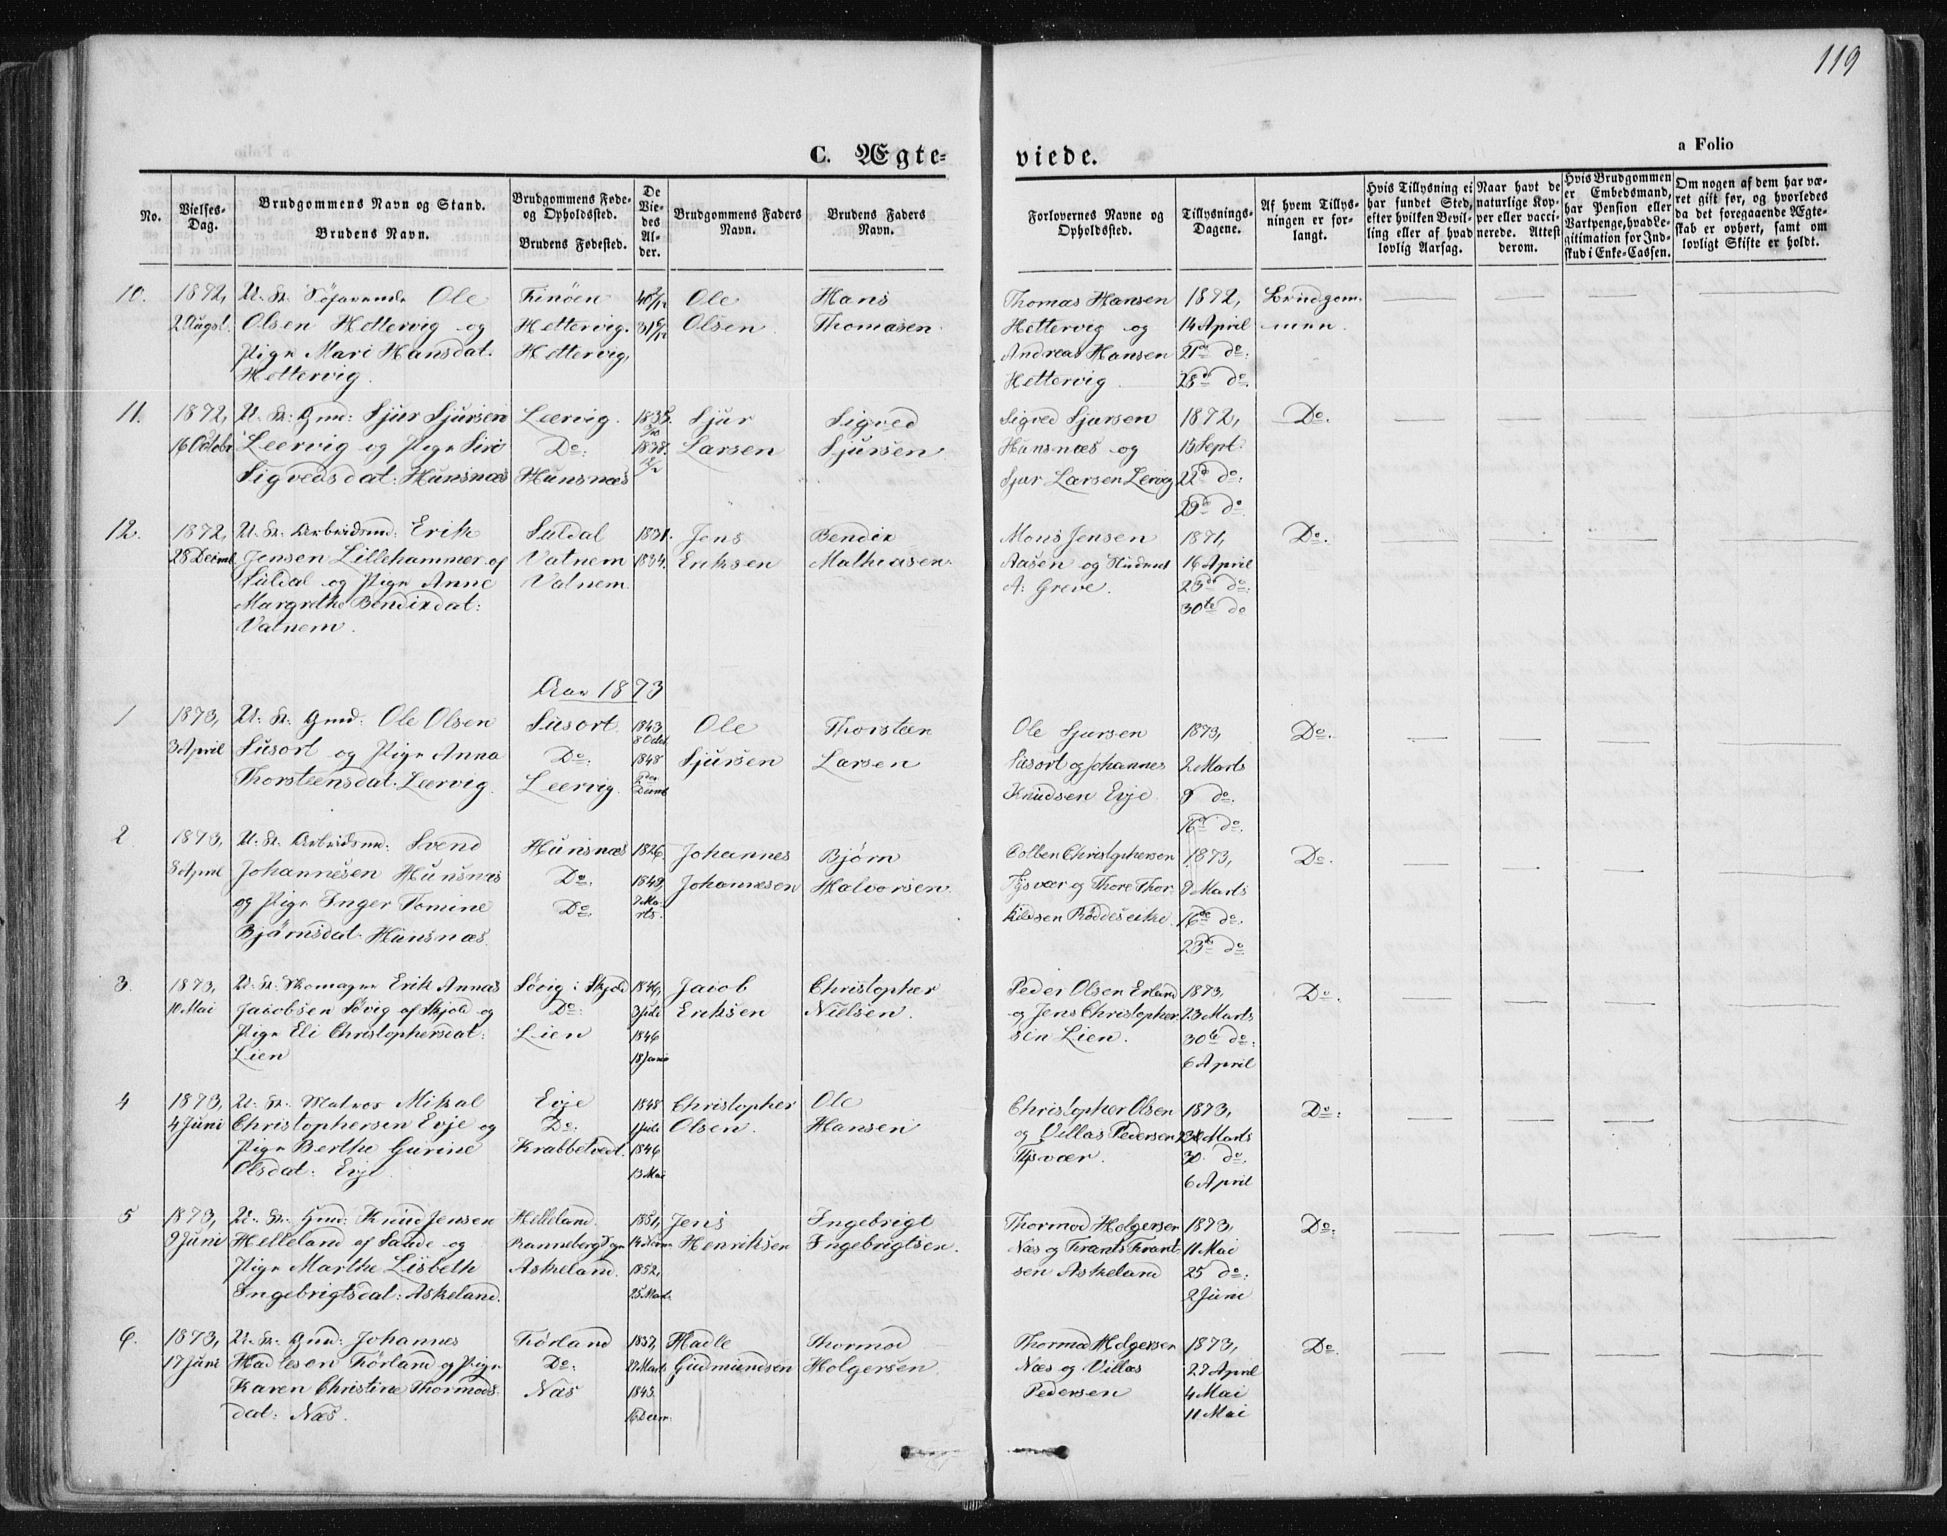 119
C. Ægte-
viede.
a Folio
No.
Vielses-
Dag.
Brudgommens Navn og Stand.
Brudens Navn.
Brudgommens Føde-
og Opholdssted.
Brudens Fødested.
De
Vie-
des
Al-
der.
Brudgommens Faders
Navn.
Brudens Faders
Navn.
Forlovernes Navne og
Opholdssted.
Tillysnings-
Dagene.
Af hvem Tillys-
ningen er for-
langt.
Hvis Tillysning ei
har fundet Sted,
efter hvilken Bevil-
ling eller af hvad
lovlig Aarsag.
Naar havt de
naturlige Kop-
per eller vacci-
nerede. Attest
derom.
Hvis Brudgommen
er Embedsmand,
har Pension eller
Vartpenge, hvad Le-
gitimation for Ind-
skud i Enke-Cassen.
Om nogen af dem har væ-
ret gift før, og hvorledes
da det foregaaende Ægte-
skab er ophørt, samt om
lovligt Skifte er holdt.
10.
1872,
2 Augst.
U. St. Søfarende Ole
Olsen Hettervig og
Pige Mari Hansdat.
Hettervig.
Finöen
Hettervig.
Hettervig,
Ole
Olsen
Hans
Thomasen.
Thomas Hansen
Hettervig og
Andreas Hansen
Hettervig.
1872,
14 April
21de do:
28de do.
Brudgom-
men.
11.
1872,
16 Octobr
U. St: Gmd: Sjur Sjursen
Leervig og Pige Siri
Sigvedsdat: Hunsnæs
Leervig.
Do:
Hunsnæs
1838.
Sjur
Larsen
Sigved
Sjursen
Sigved Sjursen
Hunsnæs og
Sjur Larsen Lervig
1872,
15 Sept:
22de do:
29de do.
Do.
12.
1872,
28 Decmb
U. St. Arbeidsmd: Erik
Jensen Lillehammer af
Suldal og Pige Anne
Margrethe Bendixdat:
Vatnem.
Suldal
Vatnem
Vatnem
1831.
1834.
Jens
Eriksen
Bendix
Mathiasen.
Mons Jensen
Aasen og Student
A: Greve.
1871,
16 April
23de do:
30te do
Do.
Aar 1873
1
1873,
3 April
U: St. Gmd: Ole Olsen
Susort og Pige Anna
Thorsteensdat: Leervig.
Susort.
Do:
Leervig.
1843,
8 Octb.
1848
Ole
Sjursen
Thorsteen
Larsen
Ole Sjursen
Susort og Johannes
Knudsen Evje.
1873,
2 Marts
9 do.
16de do.
Do.
2
1873,
8 April
U: St. Arbeidsmd: Svend
Johannesen Hunsnæs
og Pige Inger Tomine
Bjørnsdat. Hunsnæs.
Hunsnæs
Do.
Do.
1826.
1849,
7 Ma-
rts.
Johannes
Johannesen
Bjørn
Halvorsen.
Colben Christophersen
Tysvær og Thore Thor-
kildsen Røddeseike.
1873,
9 Marts
16de do.
23de do
Do.
3.
1873,
10 Mai
U. St. Skomager Erik Annas
Jacobsen Søvig af Skjold og
Pige Eli Christophersdat:
Lien
Søvig i Skjold
Do:
Lien
1846,
3 Juli
1846
18 Janr
Jacob
Eriksen
Christopher
Nielsen.
Peder Olsen Erland
og Jens Christopher-
sen Lien.
1873,
23 Marts
30te do:
6 April
Do.
4
1873,
4 Juni
U: St. Matros Mikal
Christophersen Evje og
Pige Berthe Gurine
Olsdat: Evje.
Evje
Do.
Krabbetvedt.
1848
1 Juli
1846
13 Mai
Christopher
Olsen.
Ole
Hansen
Christopher Olsen
og Villas Pedersen
Tysvær.
1873,
23 Marts
30. do.
6 April
Do:
5
1873,
9 Juni
U. St. Gmd: Knud Jensen
Helleland af Saude og
Pige Marthe Lisbeth
Ingebrigtsdat: Askeland.
Helleland.
Askeland.
1851,
1852,
25 Mart.
Jens
Henriksen
Ingebrigt
Ingebrigtsen.
Thormod Holgersen
Næs og Frants Frant-
sen Askeland
1873,
11 Mai
25 do:
2 Juni
Do.
6.
1873,
17 Juni
U. St. Gmd: Johannes
Hadlesen Førland og Pige
Karen Christine Thormods-
dat: Næs.
Førland
Do:
Næs
1837,
27 Mart.
1843.
Hadle
Gudmundsen
Thormod
Holgersen.
Thormod Holgersen
Næs og Villas
Pedersen
1873,
27 April
4 Mai
11 Mai
Do.